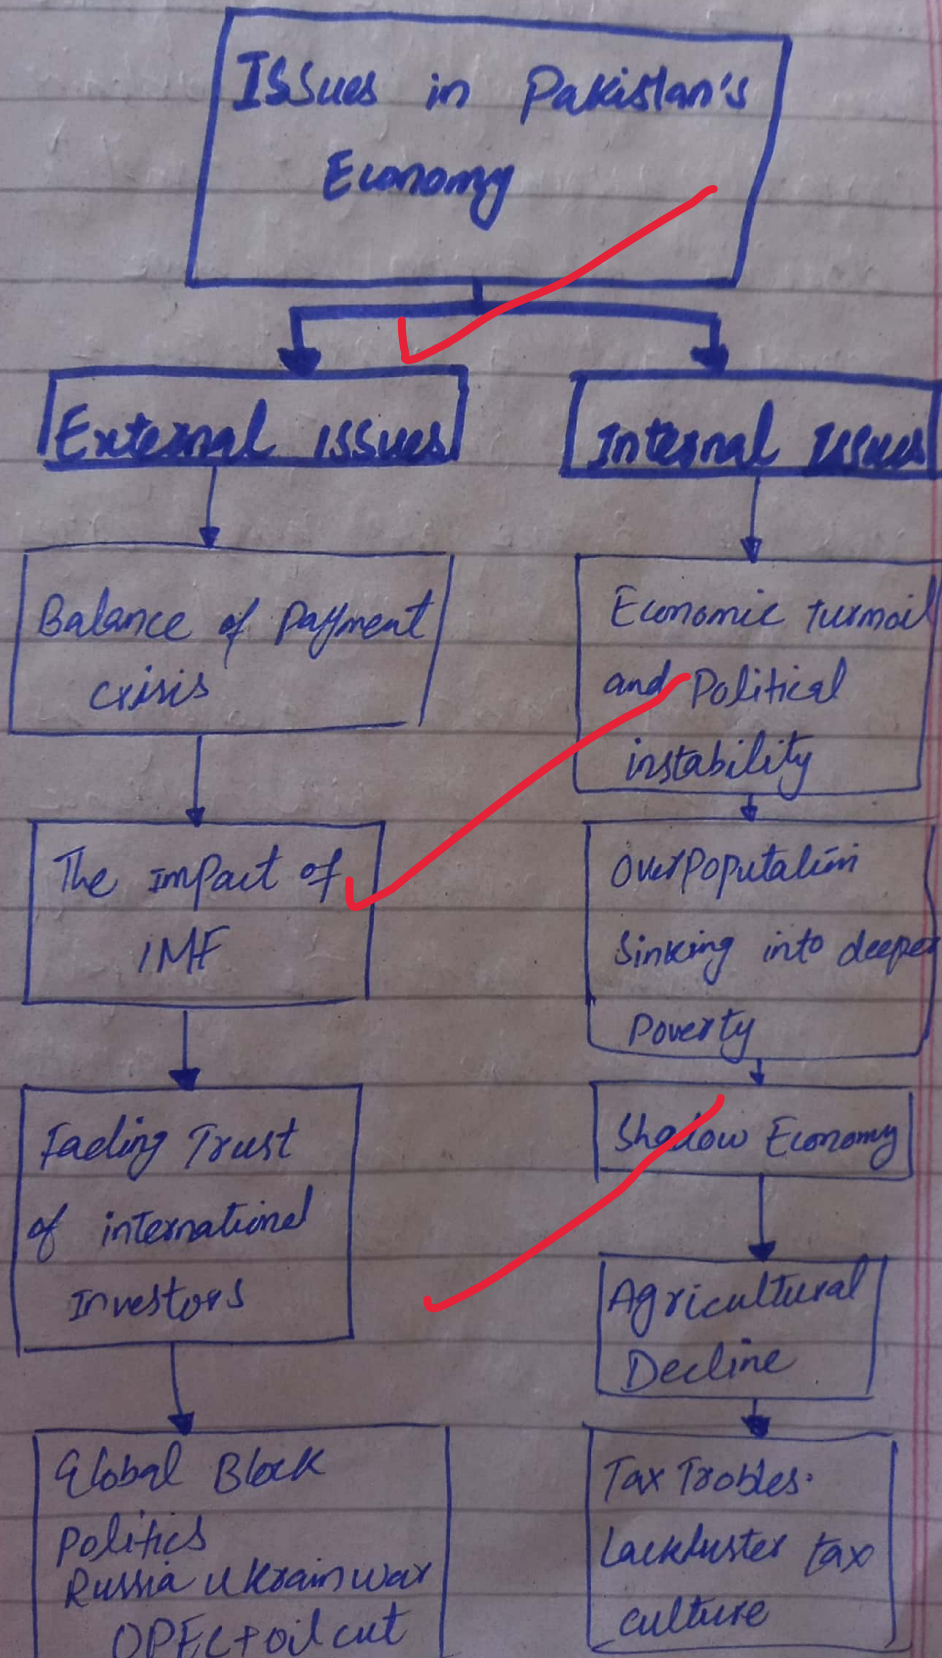 Issues in Pakistan's
Economy
External issues
Internal Issues
Balance of Payment
crisis
The impact of
IMF
Fading Trust
of international
Investors
Global Block
Politics
Russia Ukrain war
OPEC+ oil cut
Economic turmoil
and Political
instability
Overpopulation
Sinking into deeper
Poverty
Shadow Economy
Agricultural
Decline
Tax Trobles.
Lackluster tax
culture